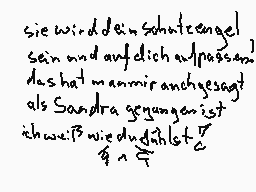 sie wird dein schutzengel
sein und auf dich aufpassen!
das hat man mir auch gesagt
als Sandra gegangen ist
ich weiß wie du fühlst